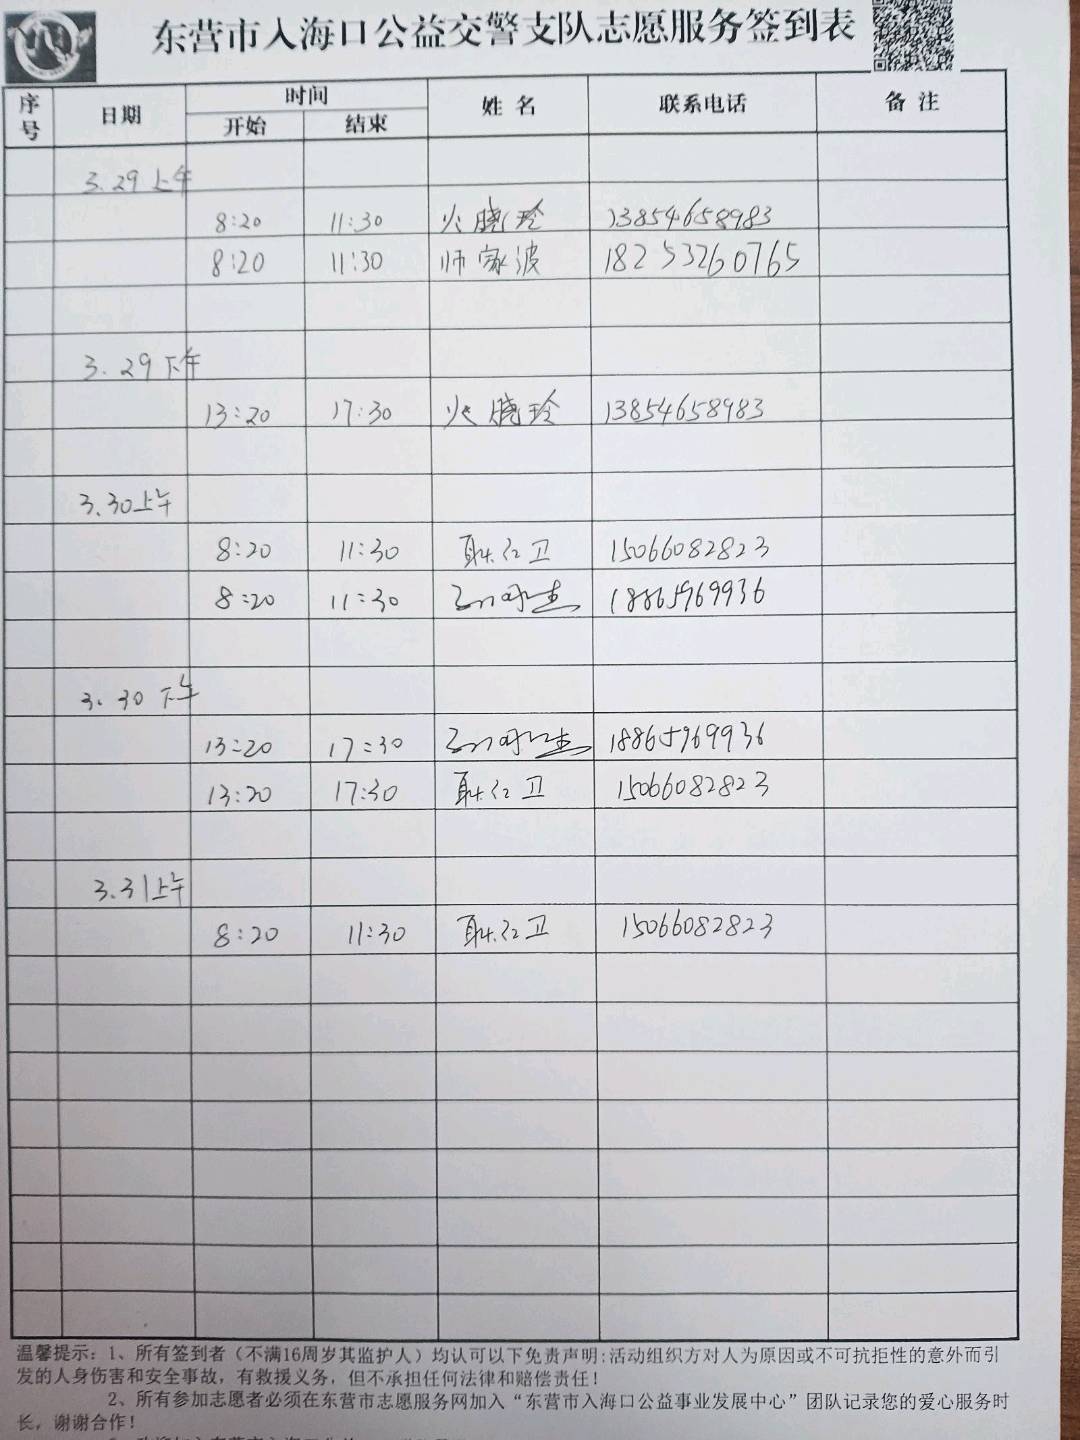 东营市入海口公益交警支队志愿服务签到表
序号 日期 时间 姓 名 联系电话 备 注
开始 结束
3.29上午
8:20 11:30 火晓玲 13854658983
8:20 11:30 师家波 18253260765
3.29下午
13:20 17:30 火晓玲 13854658983
3.30上午
8:20 11:30 耿红卫 15066082823
8:20 11:30 18865969936
3.30下午
13:20 17:30 18865969936
13:20 17:30 耿红卫 15066082823
3.31上午
8:20 11:30 耿红卫 15066082823
温馨提示：1、所有签到者（不满16周岁其监护人）均认可以下免责声明:活动组织方对人为原因或不可抗拒性的意外而引
发的人身伤害和安全事故，有救援义务，但不承担任何法律和赔偿责任！
2、所有参加志愿者必须在东营市志愿服务网加入“东营市入海口公益事业发展中心”团队记录您的爱心服务时
长，谢谢合作！